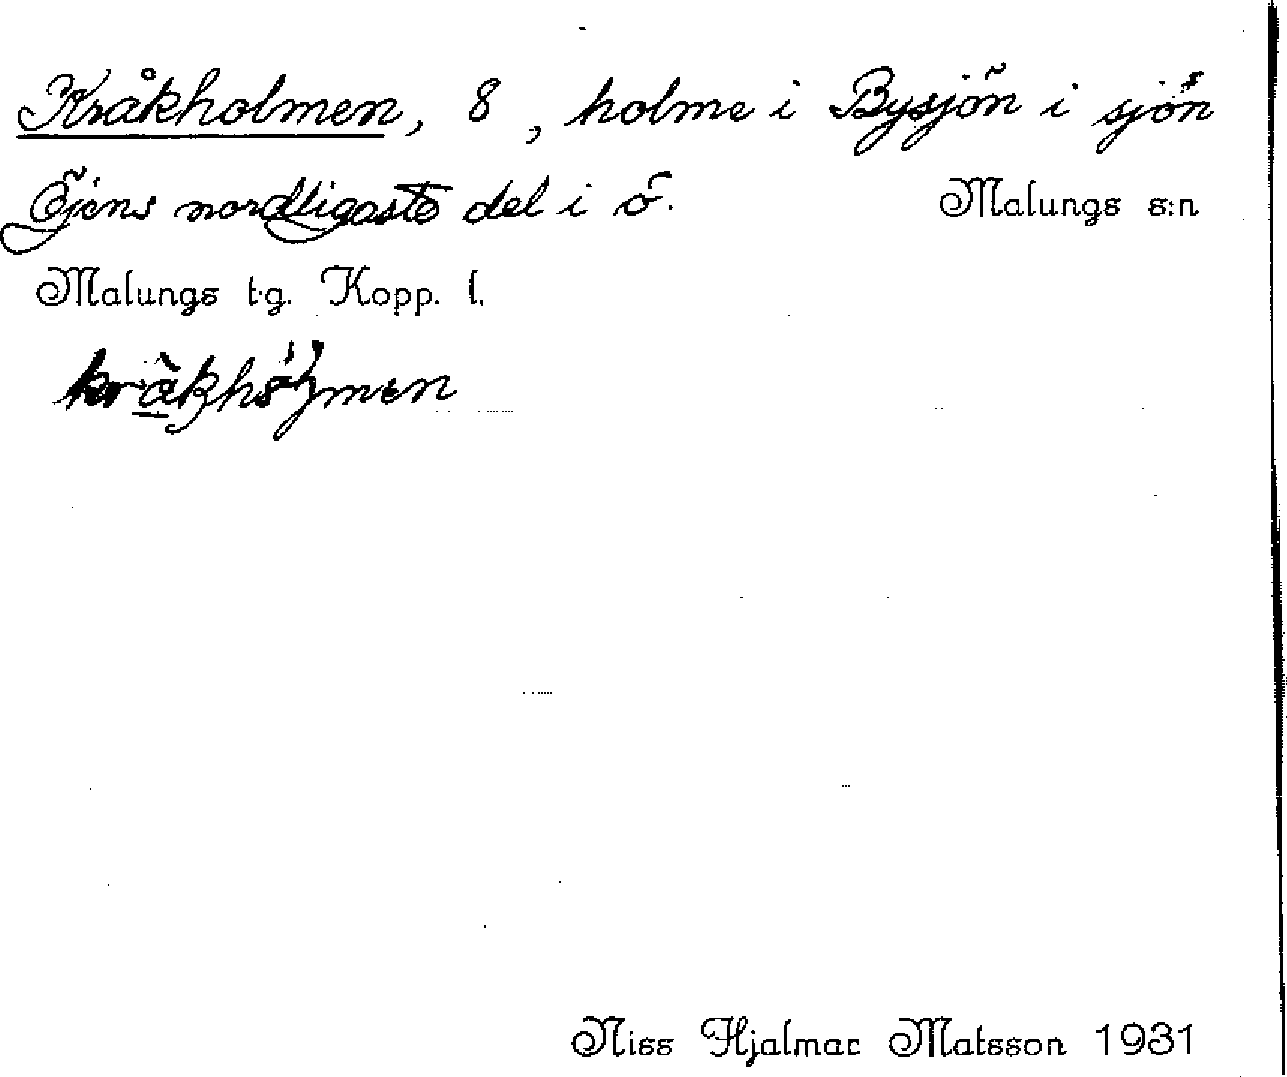 Kråkholmen, 8, holme i Bysjön i sjön
Öjens nordligaste del i ö. Malungs s:n
Malungs t.g. Kopp. l.
Niss Hjalmar Matsson 1931